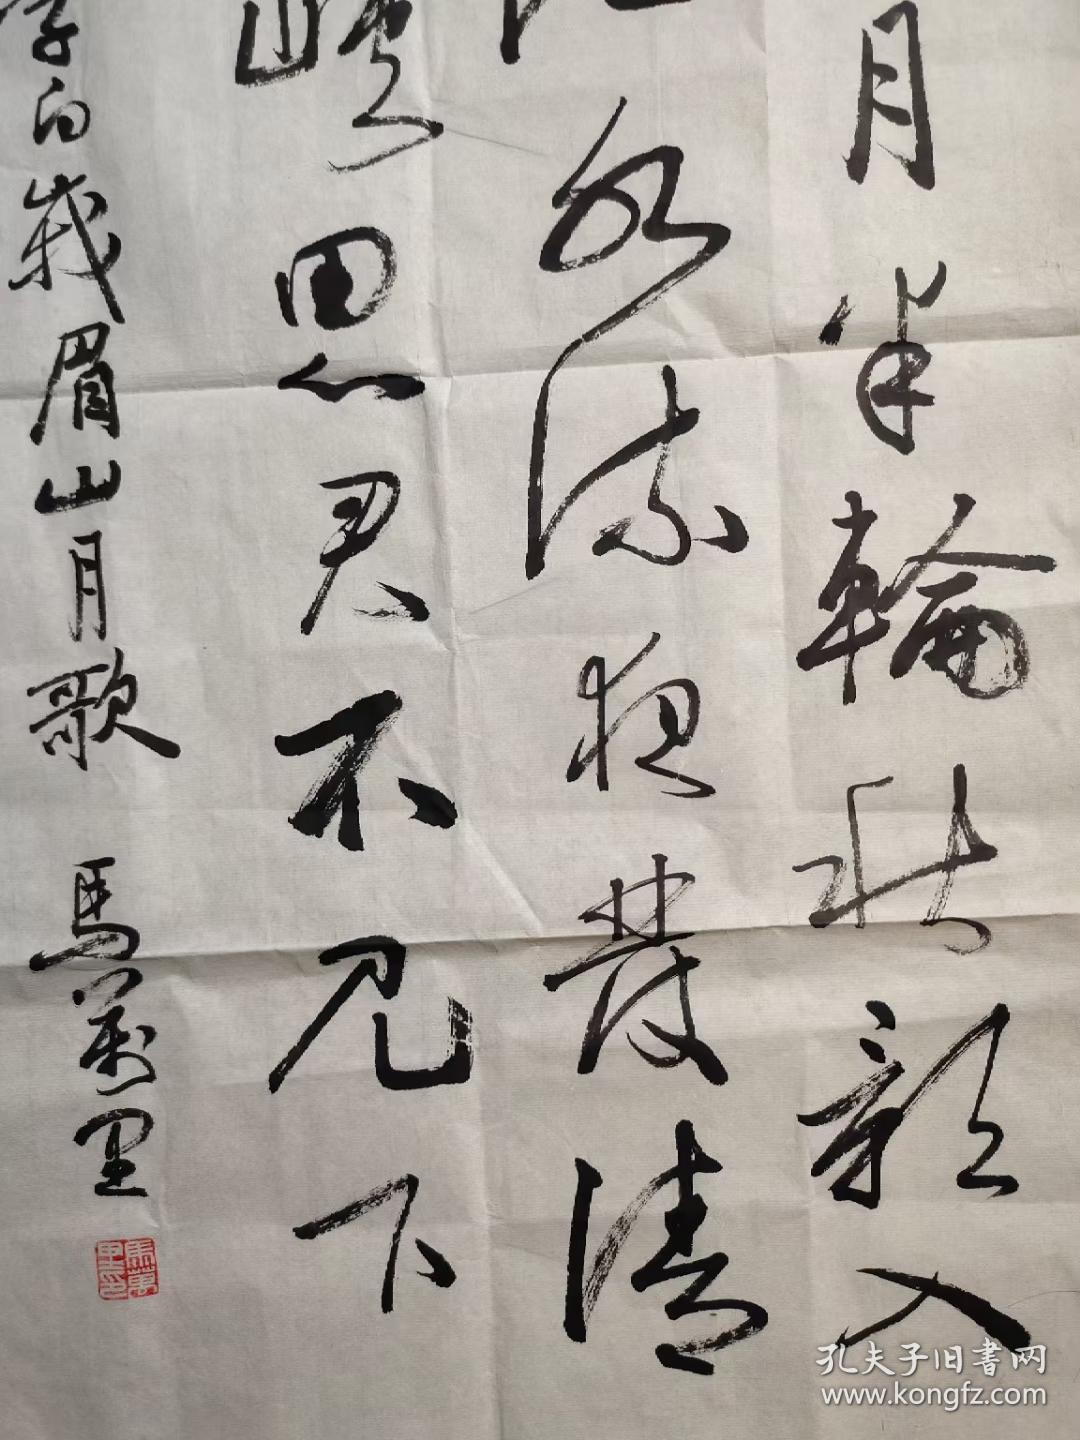 月半輪秋影入
水流夜發清
峽思君不見下
李白峨眉山月歌 馬萬里
馬萬里印
孔夫子旧書网
www.kongfz.com